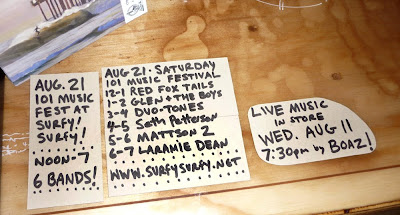 AUG. 21
101 MUSIC
FEST AT
SURFY!
SURFY!
NOON-7
6 BANDS!
AUG 21. SATURDAY
101 MUSIC FESTIVAL
12-1 RED FOX TAILS
1-2 GLEN & THE BOYS
3-4 DUO-TONES
4-5 Seth Pettersen
5-6 MATTSON 2
6-7 LARAMIE DEAN
WWW.SURFYSURFY.NET
LIVE MUSIC
IN STORE
WED. AUG 11
7:30pm by BOAZ!